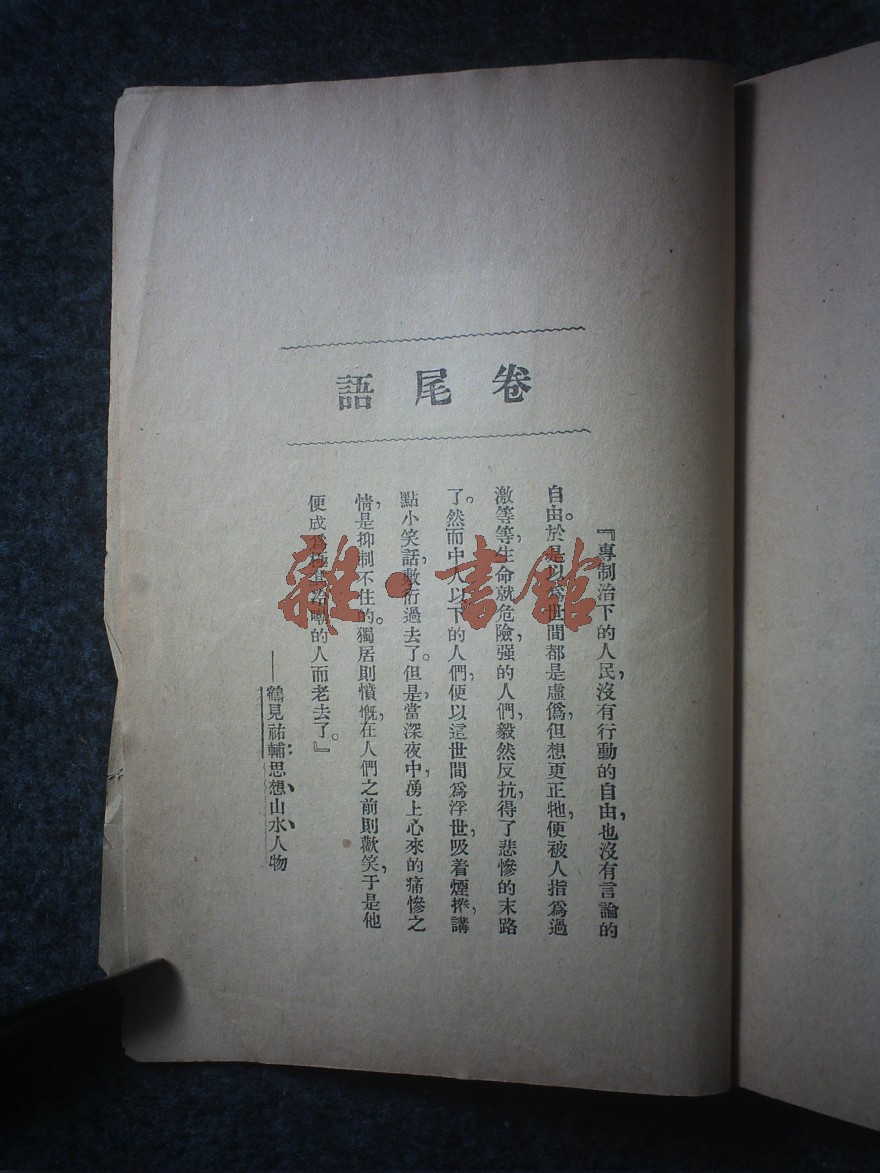 卷尾語
『專制治下的人民，沒有行動的自由，也沒有言論的
自由。於是以爲世間都是虛僞，但想更正牠，便被人指爲過
激等等，生命就危險，强的人們，毅然反抗，得了悲慘的末路
了。然而中人以下的人們，便以這世間爲浮世，吸着煙捲，講
點小笑話，敷衍過去了。但是，當深夜中，湧上心來的痛慘之
情，是抑制不住的。獨居則憤慨，在人們之前則歡笑，于是他
便成爲極
的人而老去了。』
——鶴見祐輔：思想、山水、人物
雜·書館